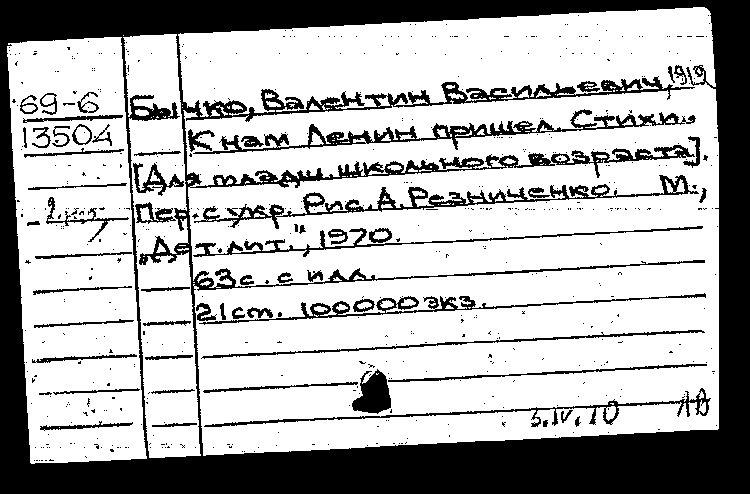 69-6 Бычко, Валентин Васильевич, 1912
13504 К нам Ленин пришел. Стихи.
[Для младш. школьного возраста].
Пер. с укр. Рис. А. Резниченко. М.,
„Дет. лит.", 1970.
63 с. с илл.
21 см. 100000 экз.
3.IV.70 АВ